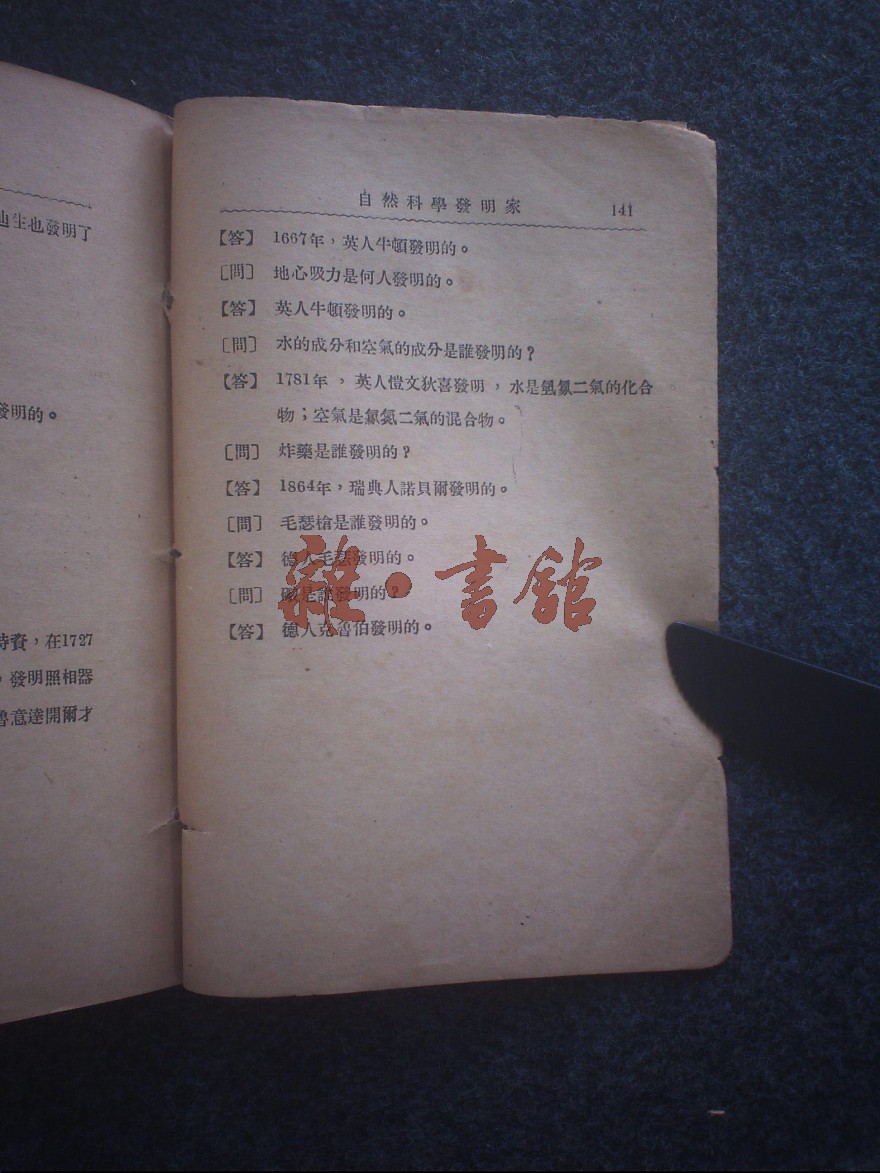 自然科學發明家 141
【答】 1667年，英人牛頓發明的。
〔問〕 地心吸力是何人發明的。
【答】 英人牛頓發明的。
〔問〕 水的成分和空氣的成分是誰發明的？
【答】 1781年，英人愷文狄喜發明，水是氫氯二氣的化合
物；空氣是氯氮二氣的混合物。
〔問〕 炸藥是誰發明的？
【答】 1864年，瑞典人諾貝爾發明的。
〔問〕 毛瑟槍是誰發明的。
【答】 德人毛瑟發明的。
〔問〕 是誰發明的？
【答】 德人克魯伯發明的。
雜·書館
生也發明了
發明的。
資，在1727
，發明照相器
意達開爾才